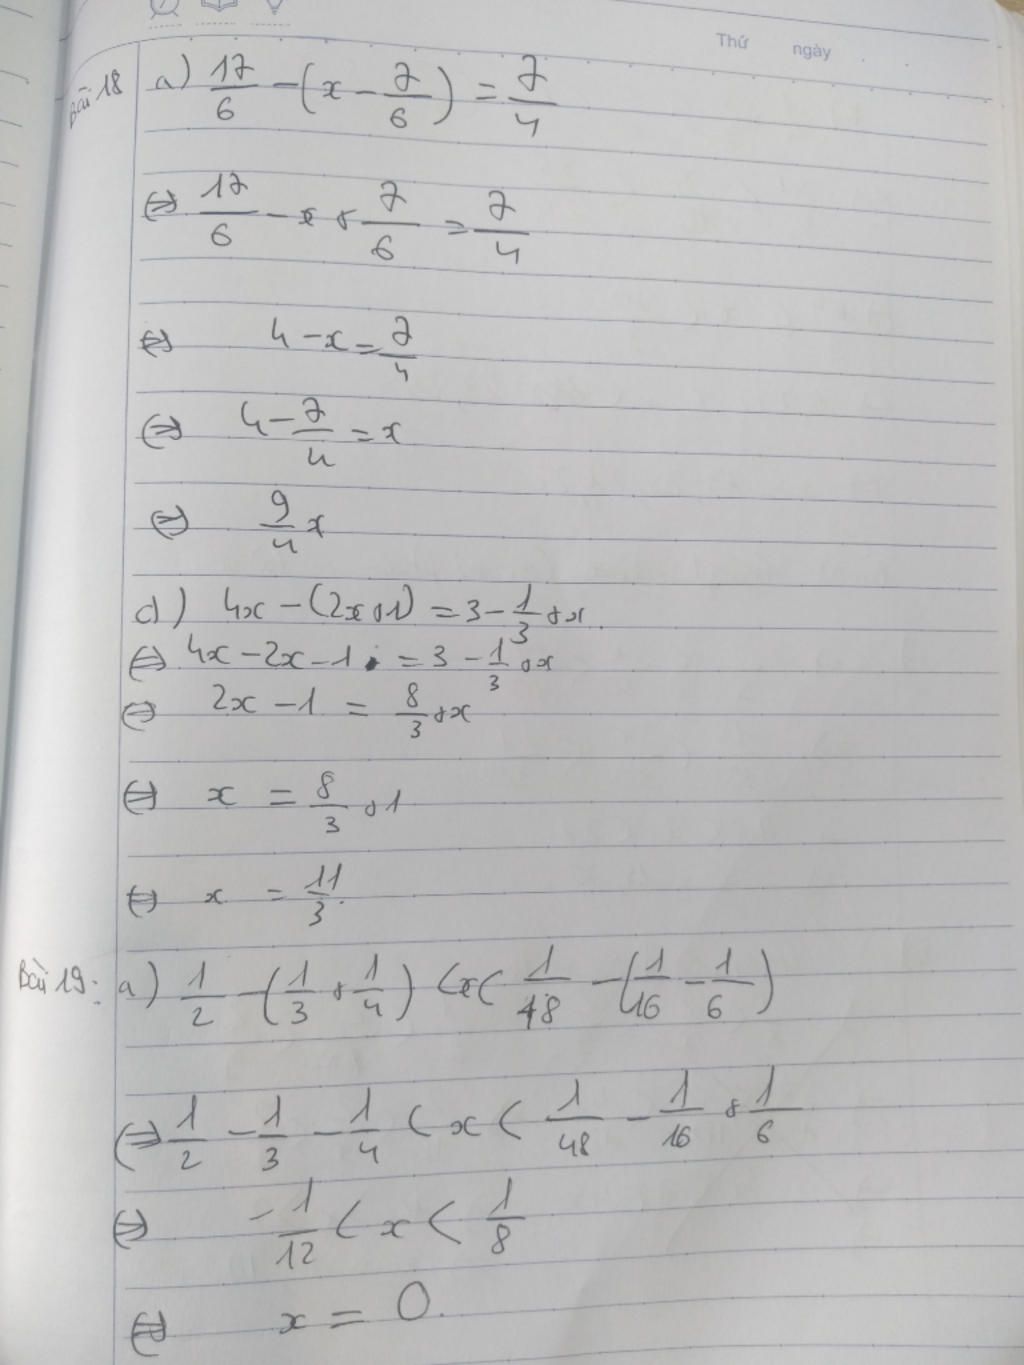 Thứ ngày
Bài 18 a) 17/6 - (x - 7/6) = 7/4
⇔ 17/6 - x + 7/6 = 7/4
⇔ 4 - x = 7/4
⇔ 4 - 7/4 = x
⇔ 9/4 x
d) 4x - (2x + 1) = 3 - 1/3 + x.
⇔ 4x - 2x - 1 = 3 - 1/3 + x
⇔ 2x - 1 = 8/3 + x
⇔ x = 8/3 + 1
⇔ x = 11/3.
Bài 19: a) 1/2 - (1/3 + 1/4) < x < 1/48 - (1/16 - 1/6)
⇔ 1/2 - 1/3 - 1/4 < x < 1/48 - 1/16 + 1/6
⇔ -1/12 < x < 1/8
⇔ x = 0.